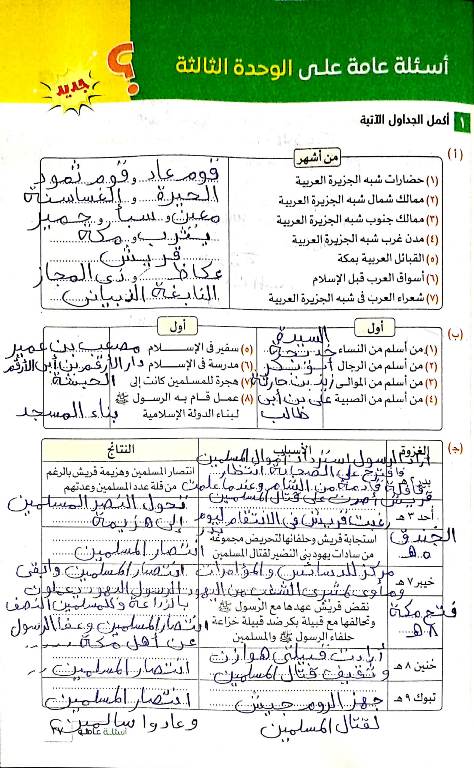 أسئلة عامة على الوحدة الثالثة
؟
جديد
١ أكمل الجداول الآتية
(أ)
من أشهر
(١) حضارات شبه الجزيرة العربية قوم عاد وقوم ثمود
(٢) ممالك شمال شبه الجزيرة العربية الحيرة والغساسنة
(٣) ممالك جنوب شبه الجزيرة العربية معين وسبأ وحمير
(٤) مدن غرب شبه الجزيرة العربية يثرب ومكة
(٥) القبائل العربية بمكة قريش
(٦) أسواق العرب قبل الإسلام عكاظ وذي المجاز
(٧) شعراء العرب فى شبه الجزيرة العربية النابغة الذبيانى
(ب)
أول
(١) من أسلم من النساء السيدة خديجة
(٢) من أسلم من الرجال أبو بكر
(٣) من أسلم من الموالى زيد بن حارثة
(٤) من أسلم من الصبية على بن أبى طالب
أول
(٥) سفير فى الإسلام مصعب بن عمير
(٦) مدرسة فى الإسلام دار الأرقم بن أبى الأرقم
(٧) هجرة للمسلمين كانت إلى الحبشة
(٨) عمل قام به الرسول ﷺ
لبناء الدولة الإسلامية بناء المسجد
(ج)
الغزوة الأسباب النتائج
أراد الرسول استرداد أموال المسلمين
قافلة قادمة من الشام وعندما علمت
قريش أصرت على قتال المسلمين
انتصار المسلمين وهزيمة قريش بالرغم
من قلة عدد المسلمين وعدتهم
أحد ٣هـ رغبت قريش فى الانتقام ليوم بدر
تحول النصر المسلمين إلى هزيمة
الخندق ٥هـ
استجابة قريش وحلفائها لتحريض مجموعة
من سادات يهود بنى النضير لقتال المسلمين
انتصار المسلمين
خيبر ٧هـ مركز للدسائس والمؤامرات
انتصار المسلمين وأبقى
الرسول اليهود يعملون
بالزراعة وللمسلمين النصف
فتح مكة ٨هـ
نقض قريش عهدها مع الرسول ﷺ
وتحالفها مع قبيلة بكر ضد قبيلة خزاعة
حلفاء الرسول ﷺ والمسلمين
انتصار المسلمين وعفا الرسول
عن أهل مكة
حنين ٨هـ أرادت قبيلتى هوازن
وثقيف قتال المسلمين
انتصار المسلمين
تبوك ٩هـ جهز الروم جيش
لقتال المسلمين
انتصار المسلمين
وعادوا سالمين
أسئلة عامة ٢٧